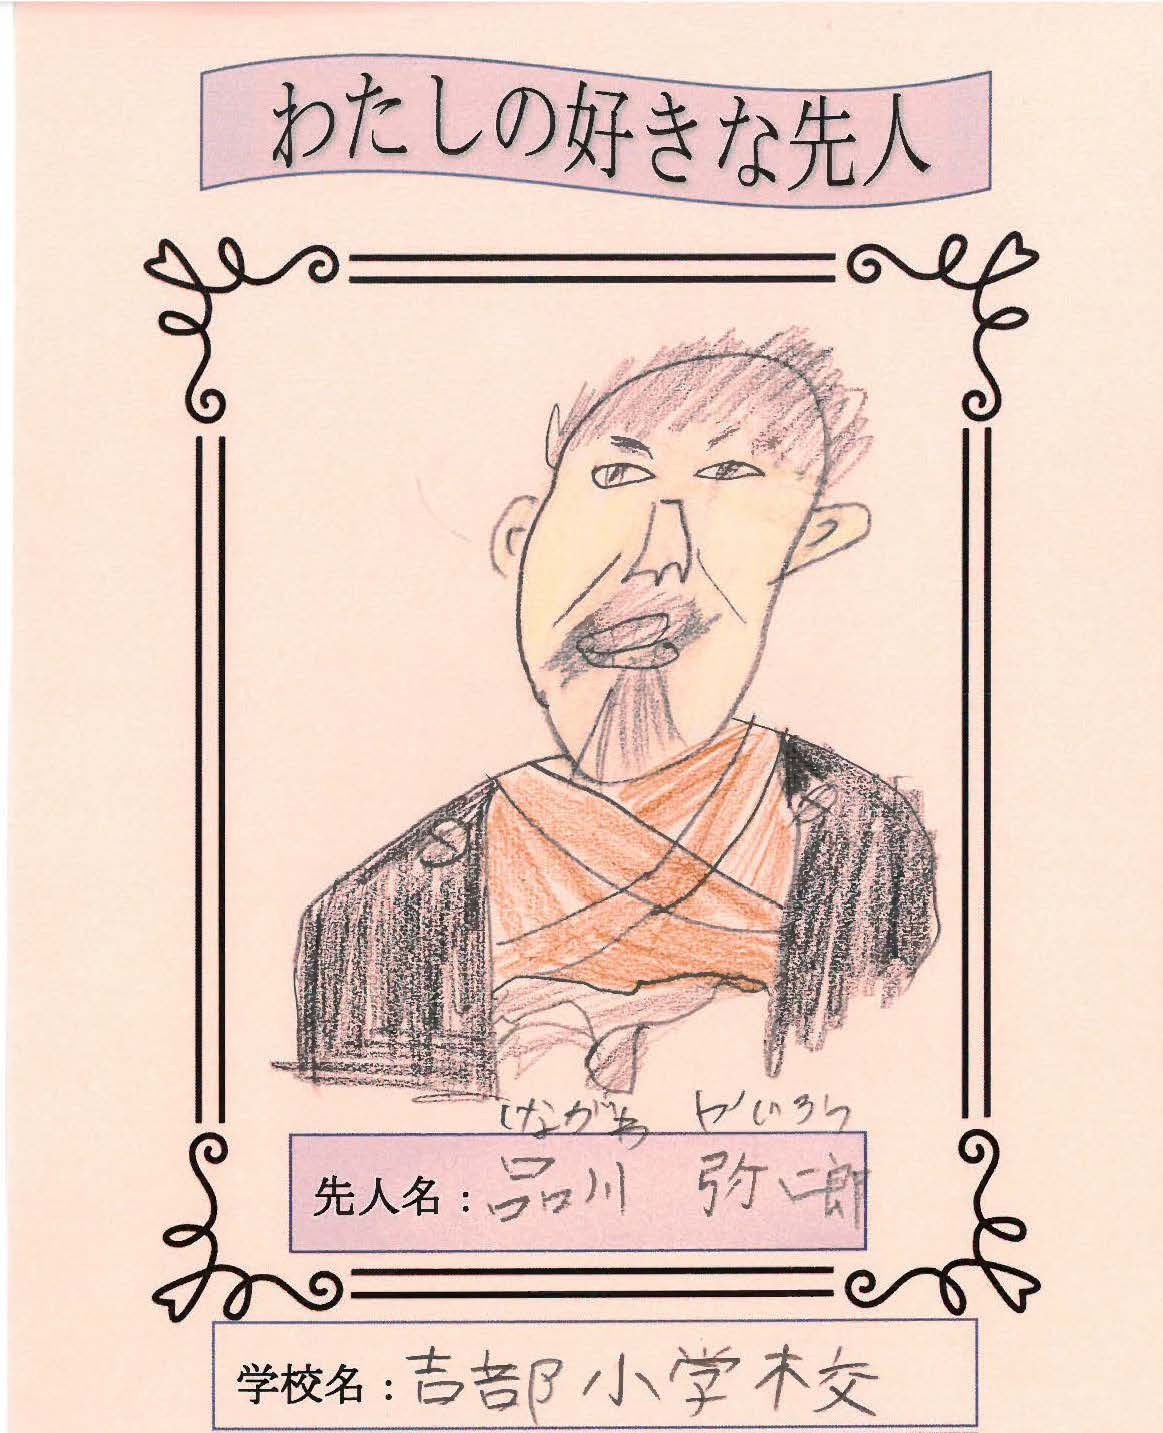 わたしの好きな先人
しながわ やじろう
先人名：品川 弥二郎
学校名：吉部小学校